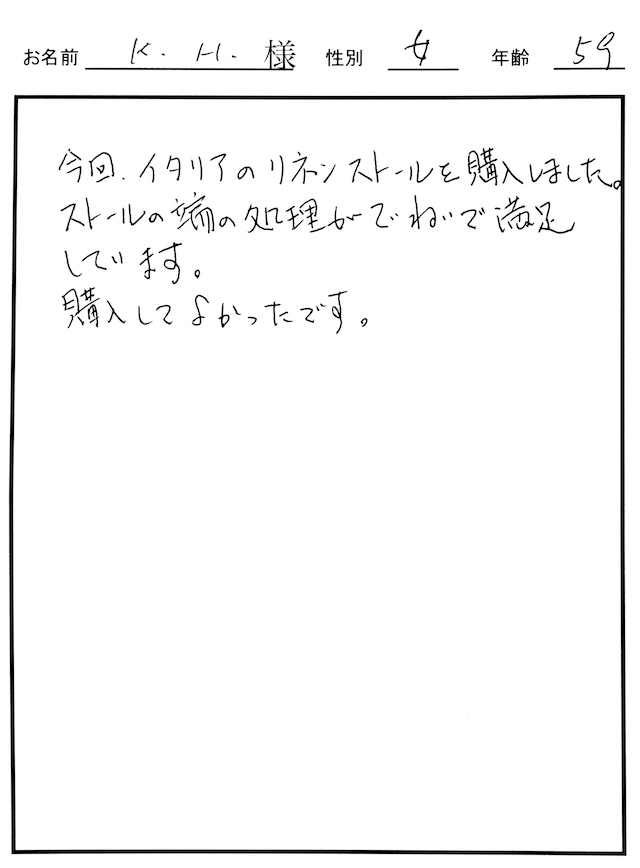 お名前 K. H. 様 性別 女 年齢 59
今回、イタリアのリネンストールを購入しました。
ストールの端の処理がていねいで満足
しています。
購入してよかったです。